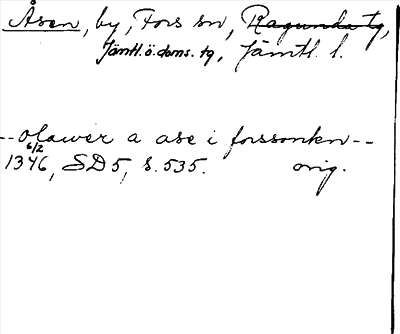 Åsen, by, Fors sn, Ragunda tg,
Jämtl.ö.doms.tg, Jämtl. l.
--olawer a ase i forssonkn--
6/2
1346, SD5, s.535. orig.